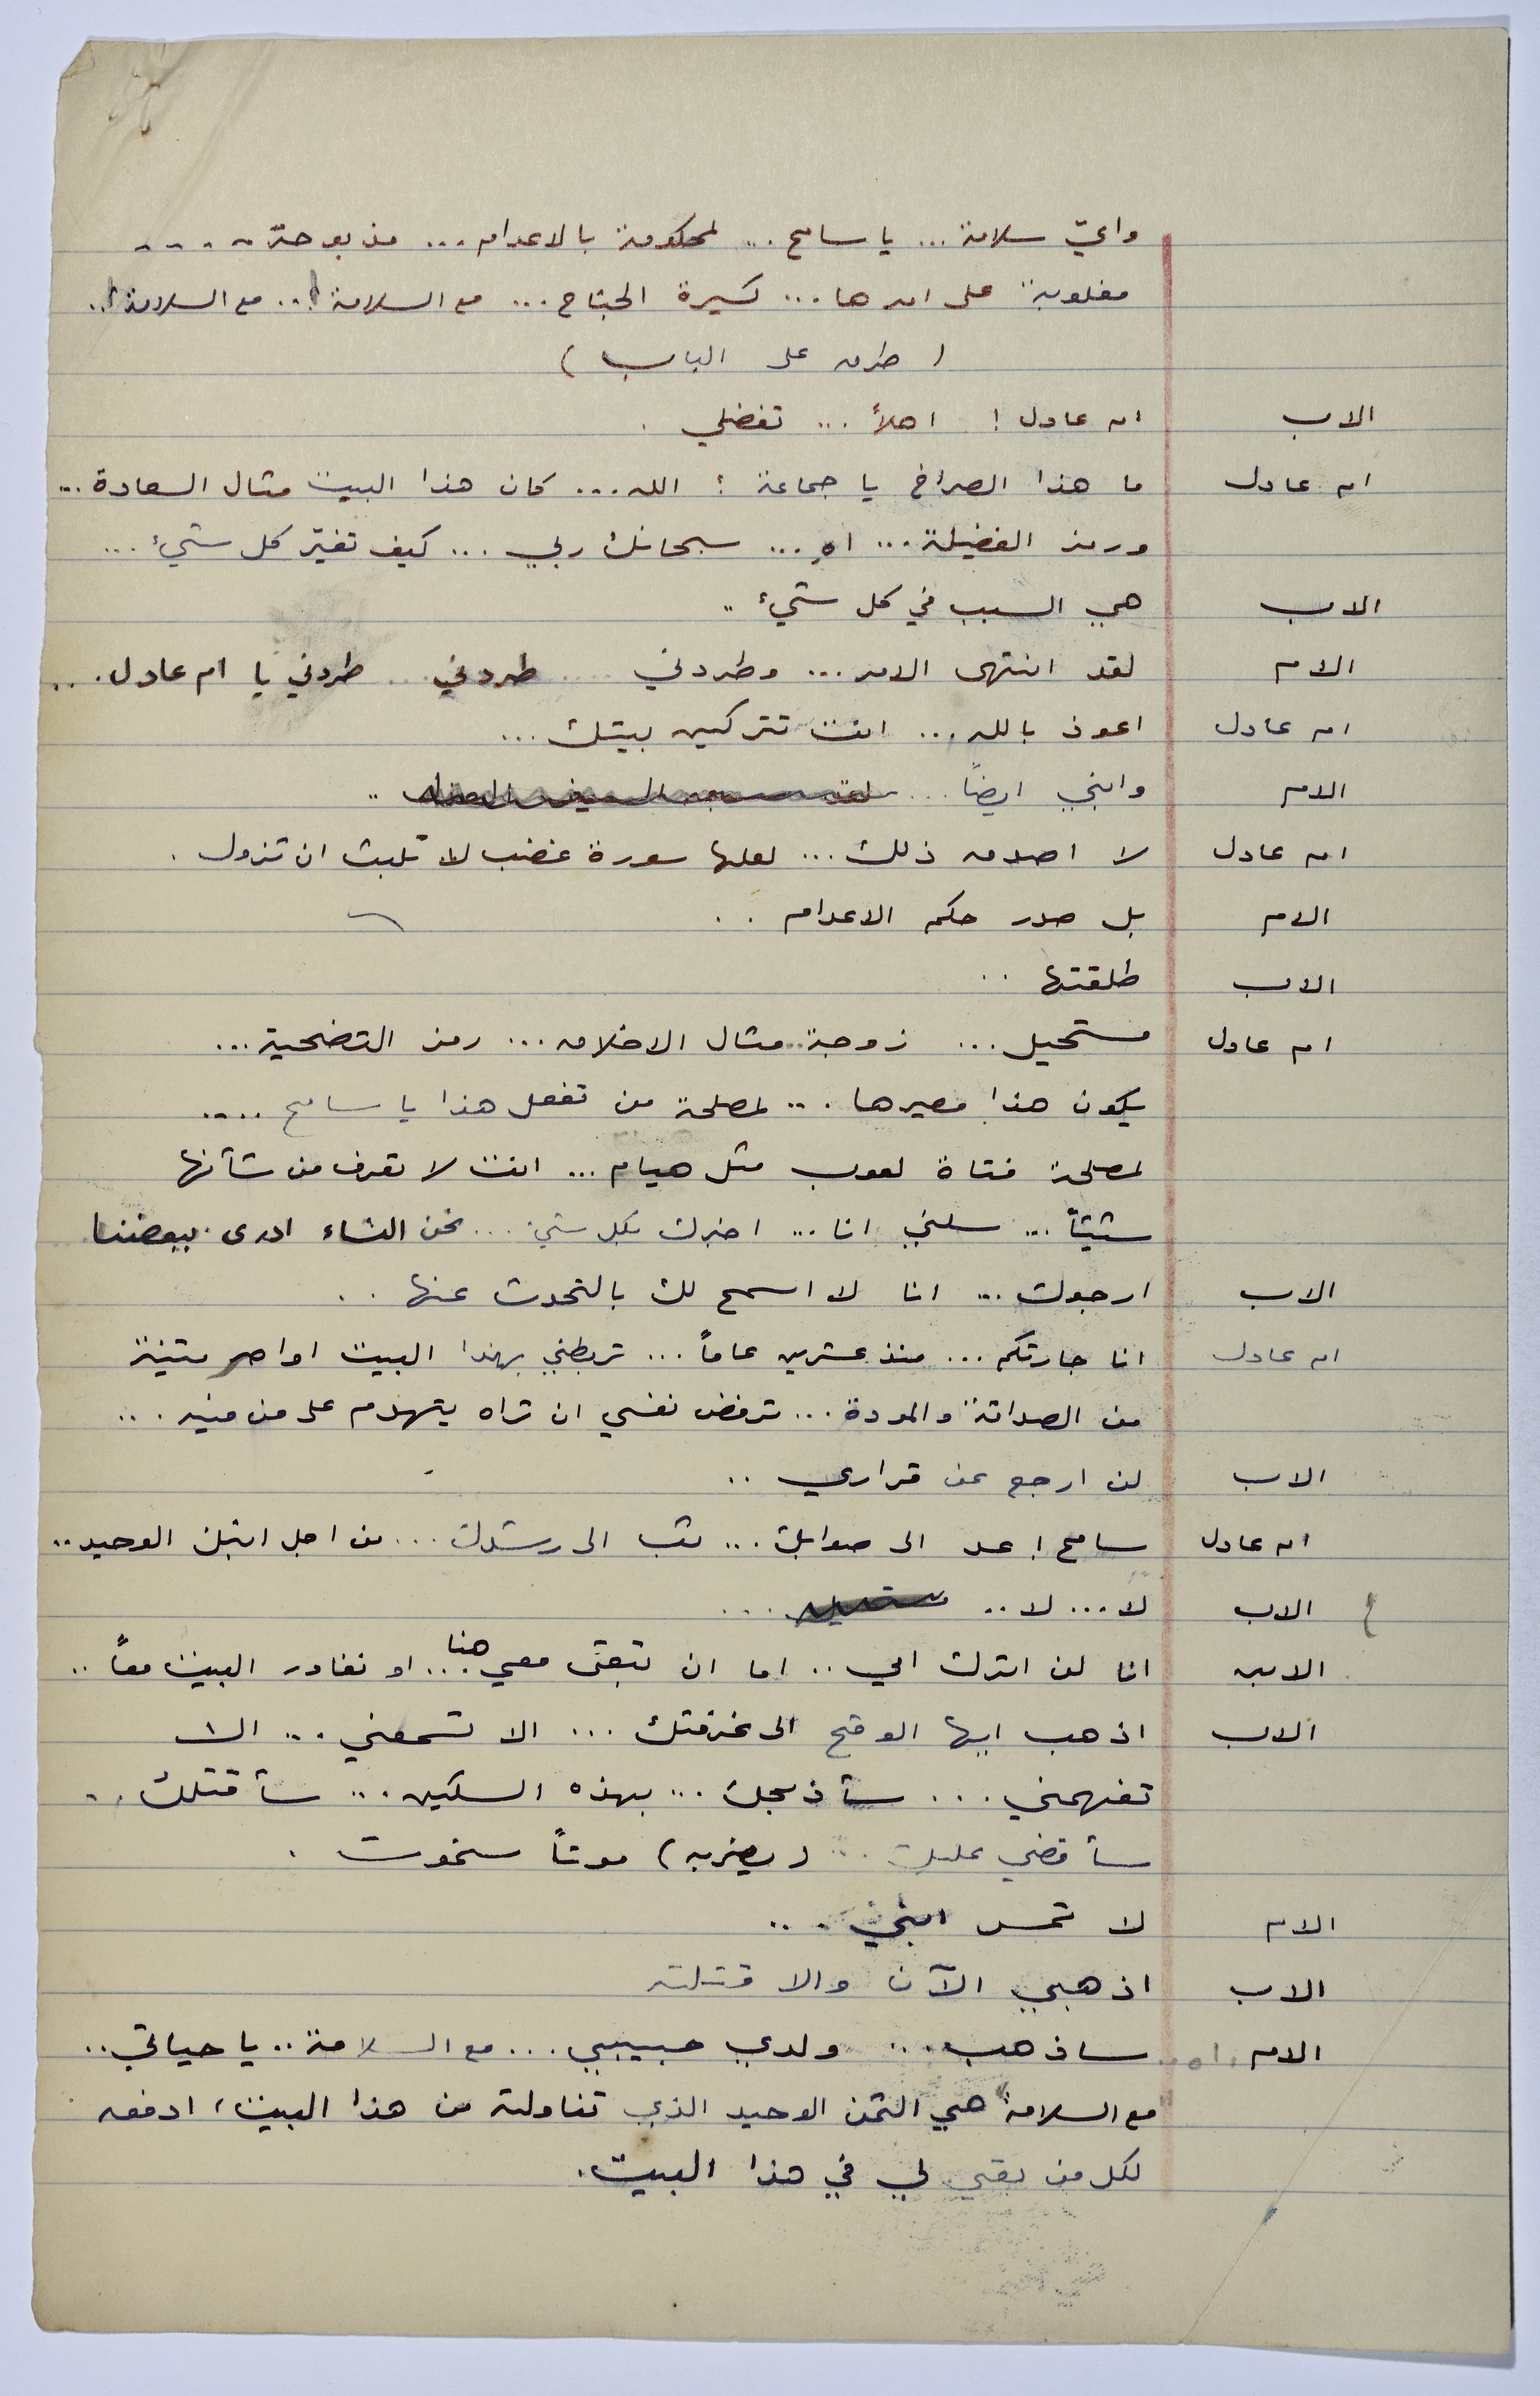 وايّ سلامة ... يا سامح ... لمحكومة بالاعدام ... مذبوحة ....
مغلوبة على امرها ... كسيرة الجناح ... مع السلامة! .. مع السلامة! ..
( طرق على الباب )
الاب ام عادل ! اهلاً ... تفضلي .
ام عادل ما هذا الصراخ يا جماعة ؛ الله ... كان هذا البيت مثال السعادة ...
ورمز الفضيلة ... اه ... سبحانك ربي ... كيف تغيّر كل شيء ...
الاب هي السبب في كل شيء ..
الام لقد انتهى الامر ... وطردني .... طردني .. طردني يا ام عادل ...
ام عادل اعوذ بالله ... انت تتركين بيتك ...
الام وابني ايضاً ... ..
ام عادل لا اصدق ذلك ... لعلها سورة غضب لا تلبث ان تزول .
الام بل صدر حكم الاعدام ..
الاب طلقتها ..
ام عادل مستحيل ... زوجة مثال الاخلاق ... رمز التضحية ...
يكون هذا مصيرها ... لمصلحة من تفعل هذا يا سامح ....
لمصلحة فتاة لعوب مثل هيام ... انت لا تعرف من شأنها
شيئاً ... سلني انا ... اخبرك بكل شيء ... نحن النساء ادرى ببعضنا
الاب ارجوك ... انا لا اسمح لك بالتحدث عنها ..
ام عادل انا جارتكم ... منذ عشرين عاماً ... تربطني بهذا البيت اواصر متينة
من الصداقة والمودة ... ترفض نفسي ان تراه يتهدم على من فيه ...
الاب لن ارجع عن قراري ..
ام عادل سامح ! عد الى صوابك ... ثب الى رشدك ... من اجل ابنك الوحيد ..
الاب لا ... لا .. مستحيل ...
الابن انا لن اترك امي .. اما ان تبقى معي هنا ... او نغادر البيت معاً ..
الاب اذهب ايها الوقح الى غرفتك ... الا تسمعني ... الا
تفهمني ... سأذبحك ... بهذه السكين ... سأقتلك ..
سأقضي عليك ... ( يضربه ) موتاً ستموت .
الام لا تمس ابني ...
الاب اذهبي الآن والا قتلته
الام اه .. ساذهب ... ولدي حبيبي ... مع السلامة .. يا حياتي ..
"مع السلامة" هي الثمن الوحيد الذي تناولته من هذا البيت ، ادفعه
لكل من بقي لي في هذا البيت .